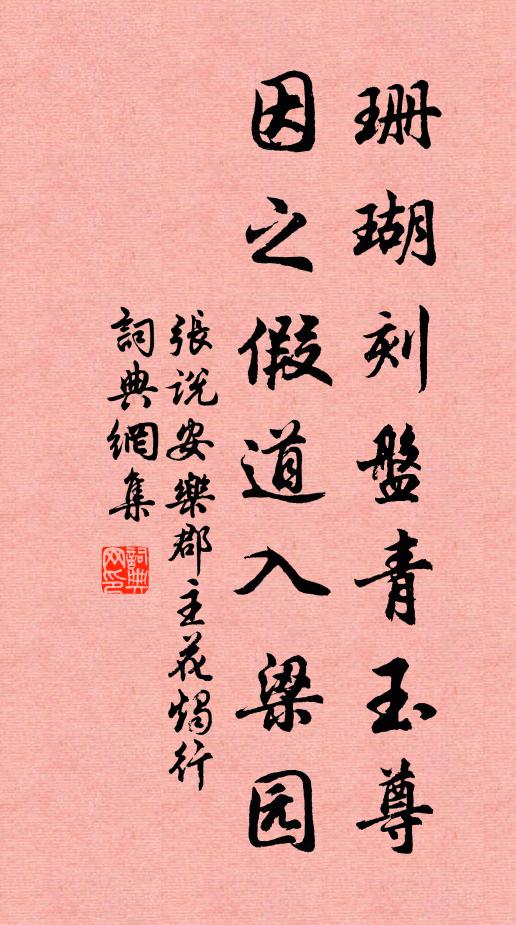 珊瑚刻盤青玉尊
因之假道入梁园
張说安樂郡主花燭行
詞典網集
詞典
网印